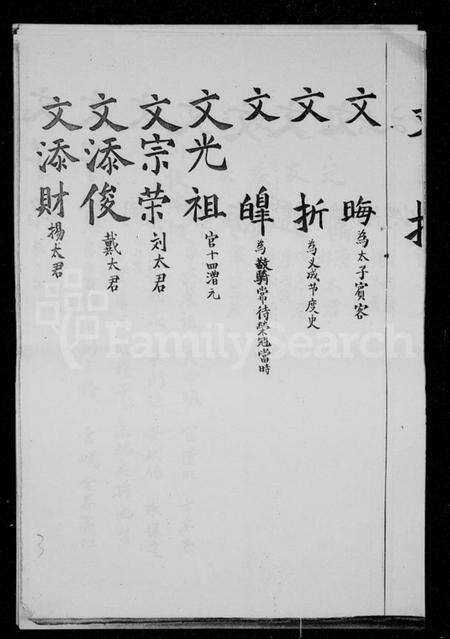 文晦為太子賓客
文折為义成节度史
文皥為散騎常待榮冠當時
文光祖官十四漕元
文宗荣刘太君
文添俊戴太君
文添財楊太君
FamilySearch
3